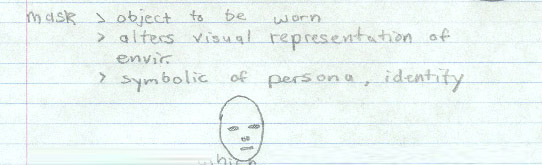 mask > object to be worn
> alters visual representation of
envir.
> symbolic of persona, identity
which